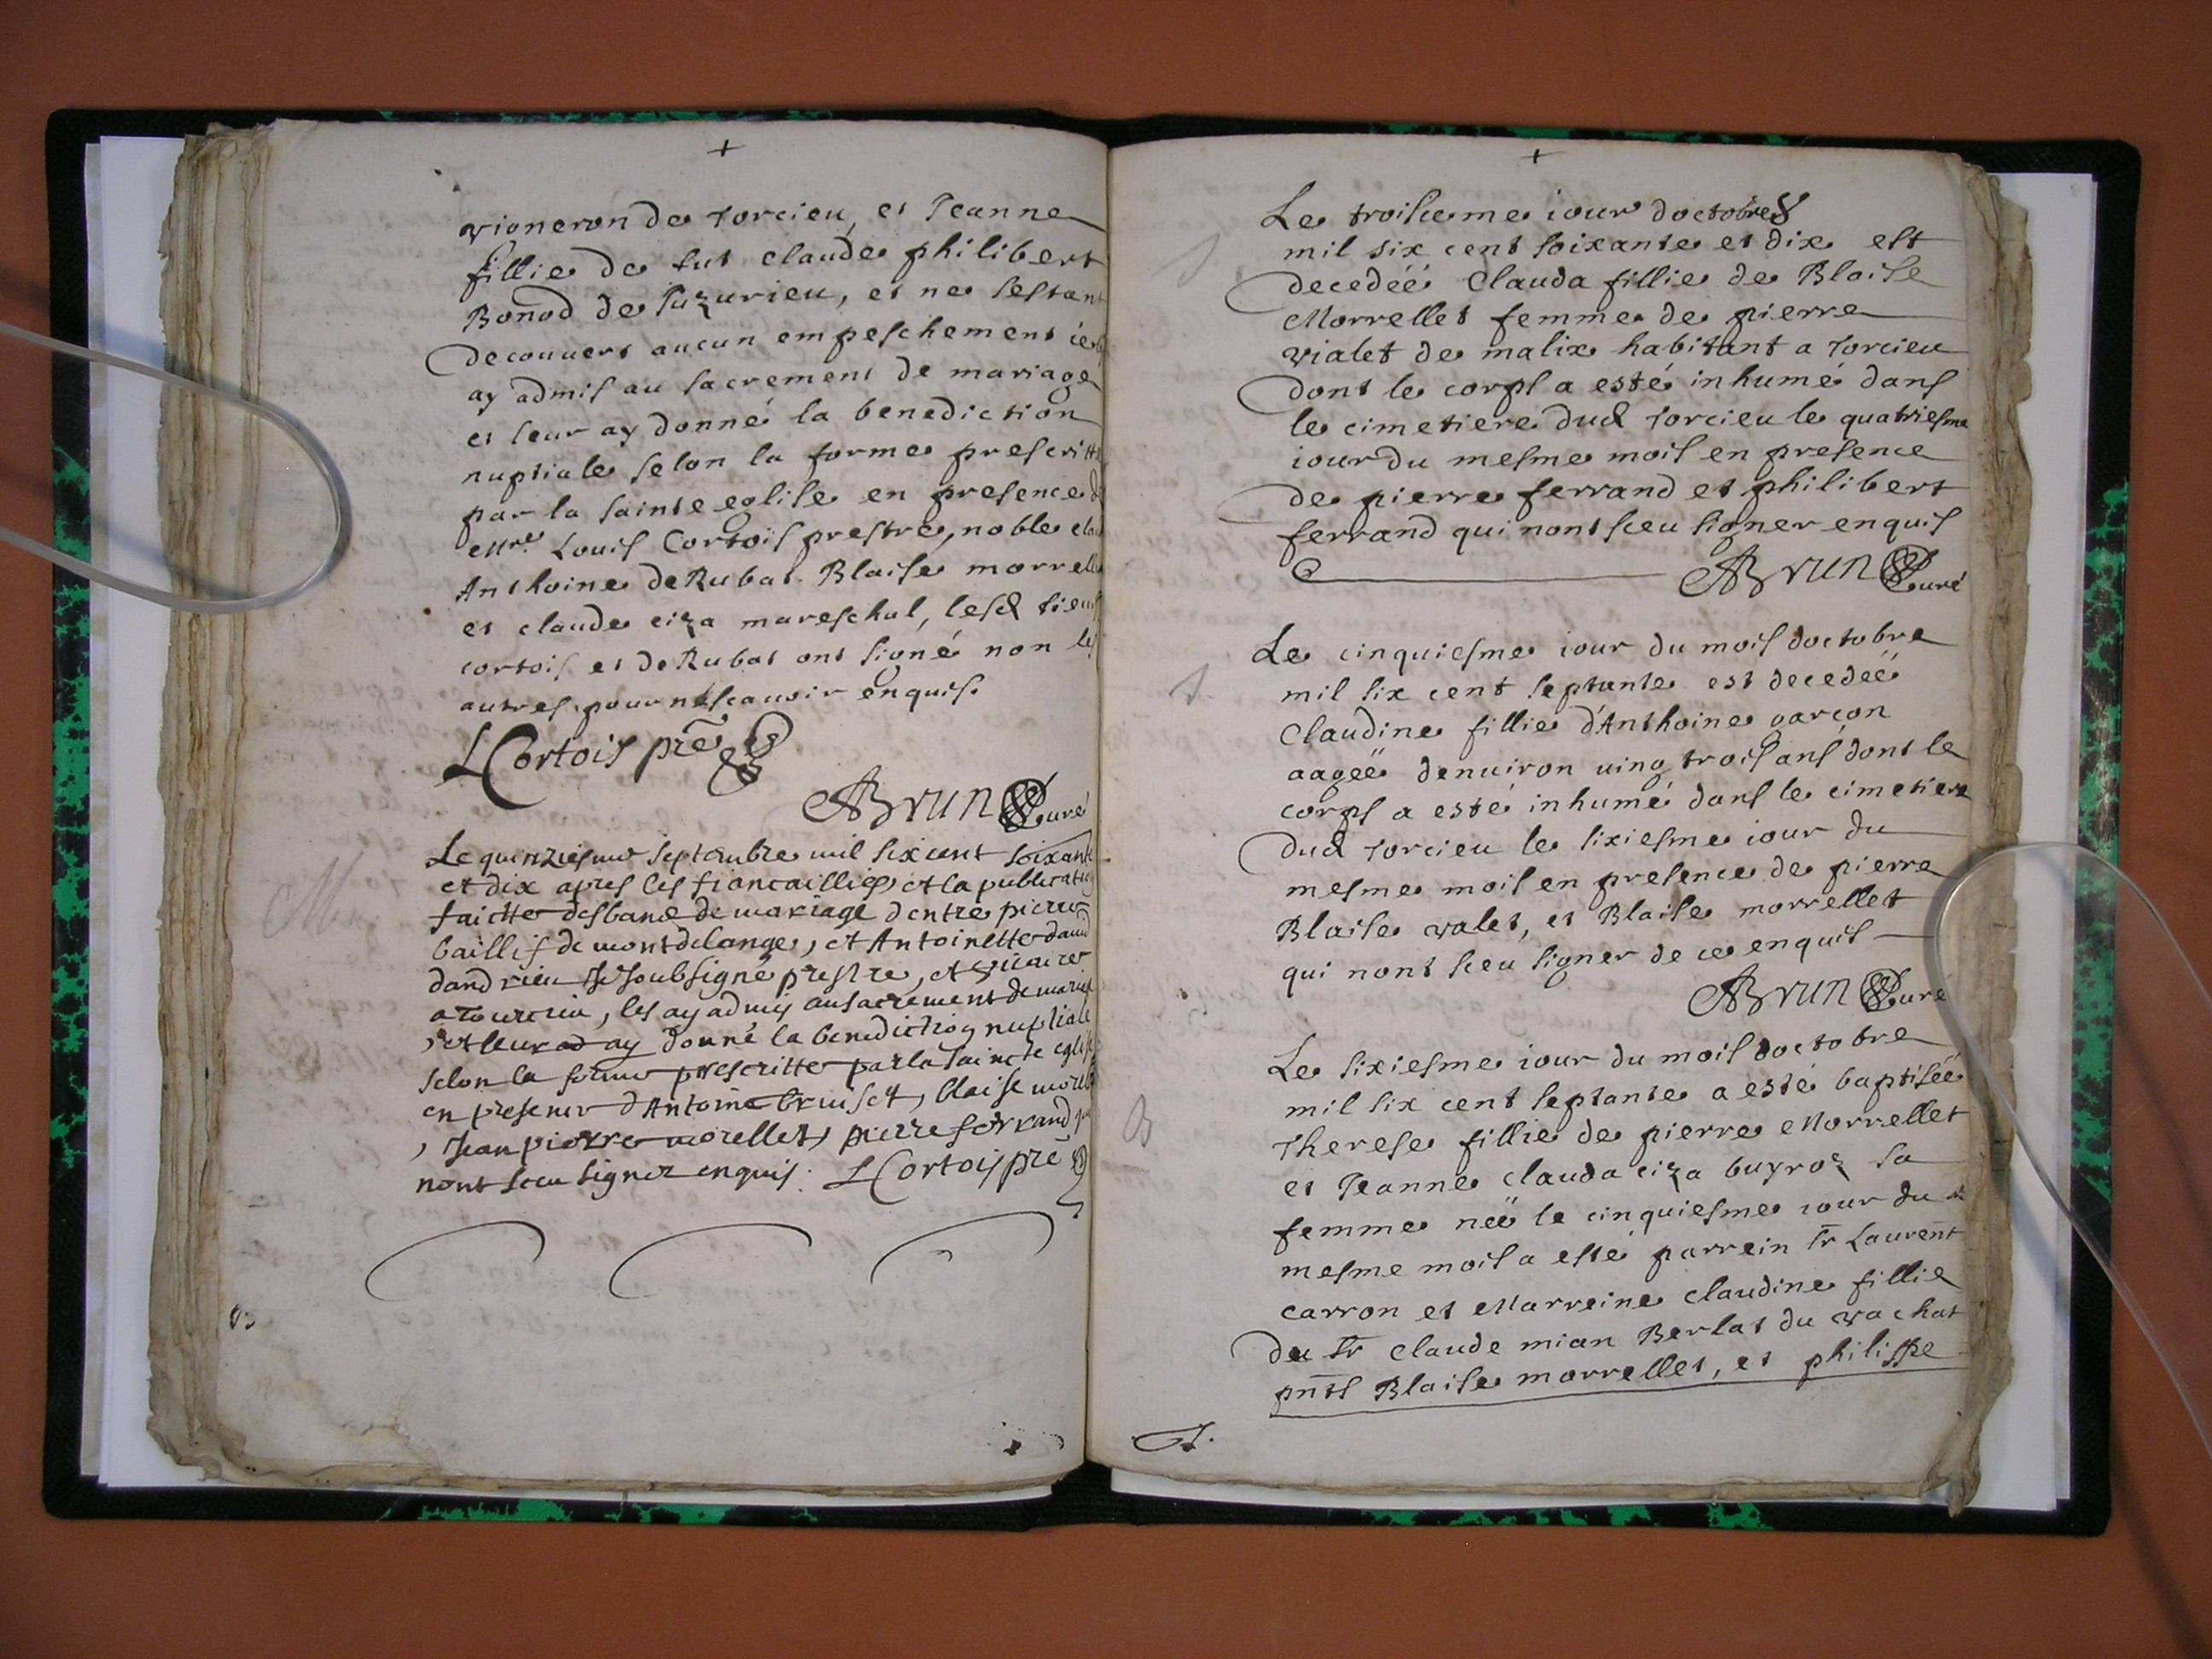 +
vigneron de torcieu, et Jeanne
fillie de fut claude philibert
Bonod de Juzurieu, et ne sestant
decouvert aucun empeschement ie les
ay admis au sacrement de mariage
et leur ay donné la benediction
nuptiale selon la forme prescritte
par la sainte eglise en presence de
Mre Louis Cortois prestre, noble
Anthoine de Rubat Blaise morrellet
et claude ciza mareschal, lesd sieurs
cortois et de Rubat ont signé non les
autres pour ne scauoir enquis.
L Cortois pre
ABrun Curé
Le quinziesme septembre mil six cent soixante
et dix apres les fiancaillies et la publication
faictte des banc de mariage dentre pierre
baillif de montdelange, et Antoinette
dandrieu Je soubsigné prestre, et vicaire
a Tourcieu, les ay admis au sacrement de mariage
, et leur ad ay donné la benediction nuptiale
selon la forme prescritte par la saincte eglise
en presence d'Antoine bruiset, blaise morellet
, Jean pierre morellet, pierre ferrand qui
nont sceu signer enquis. L Cortois pre
+
Le troisieme iour doctobre
mil six cent soixante et dix est
decedéé Clauda fillie de Blaise
Morrellet femme de pierre
vialet de malix habitant a torcieu
dont le corps a esté inhumé dans
le cimetiere dud torcieu le quatriesme
iour du mesme mois en presence
de pierre ferrand et philibert
ferrand qui nont sceu signer enquis
ABrun Curé
Le cinquiesme iour du mois doctobre
mil six cent septante est decedeë
Claudine fillie d'Anthoine garçon
aageë denuiron uing trois ans dont le
corps a esté inhumé dans le cimetiere
dud torcieu le sixiesme iour du
mesme mois en presence de pierre
Blaise valet, et Blaise morrellet
qui nont sceu signer de ce enquis
ABrun Curé
B
Le sixiesme iour du mois doctobre
mil six cent septante a esté baptiséé
Therese fillie de pierre Morrellet
et Jeanne clauda ciza buyroz sa
femme neë le cinquiesme iour du
mesme mois a esté parrein sr Laurent
carron et Marreine claudine fillie
du sr claude mian Berlat du vachat
pnts Blaise morrellet, et philippe